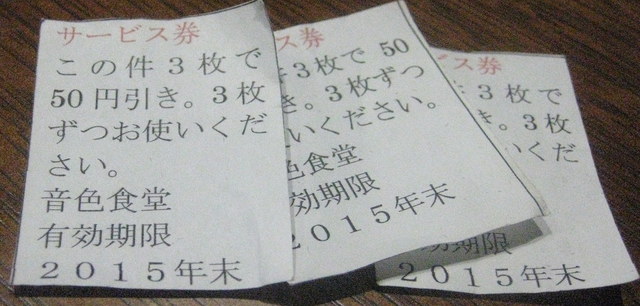 サービス券
この件３枚で
50円引き。３枚
ずつお使いくだ
さい。
音色食堂
有効期限
２０１５年末
ス券
３枚で 50
き。３枚ずつ
いください。
色食堂
効期限
２０１５年末
ス券
３枚で
き。３枚
いくだ
効期限
２０１５年末